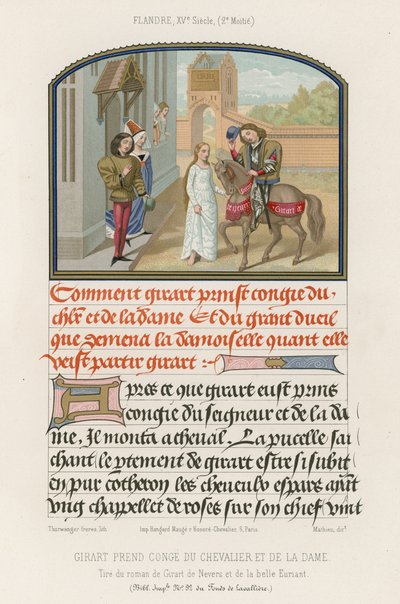 FLANDRE, XVe Siècle, (2e Moitié)
Girart de
Comment girart prinst congie du
chlr et de la dame Et du grant dueil
que demena la damoiselle quant elle
veist partir girart :~
Apres ce que girart eust prins
congie du seigneur et de la da
me, Il monta a cheval. La pucelle sai
chant le ptement de girart estre si subit
en pur cotheron les cheueulx espars aiant
vng chappellet de roses sur son chief vint
Thurwanger freres, lith. Imp. Hangard Maugé r. Honoré-Chevalier, 5, Paris. Mathieu, dirt.
GIRART PREND CONGÉ DU CHEVALIER ET DE LA DAME.
Tiré du roman de Girart de Nevers et de la belle Euriant.
(Bibl. Imple. No. 92 du Fonds de Lavallière.)